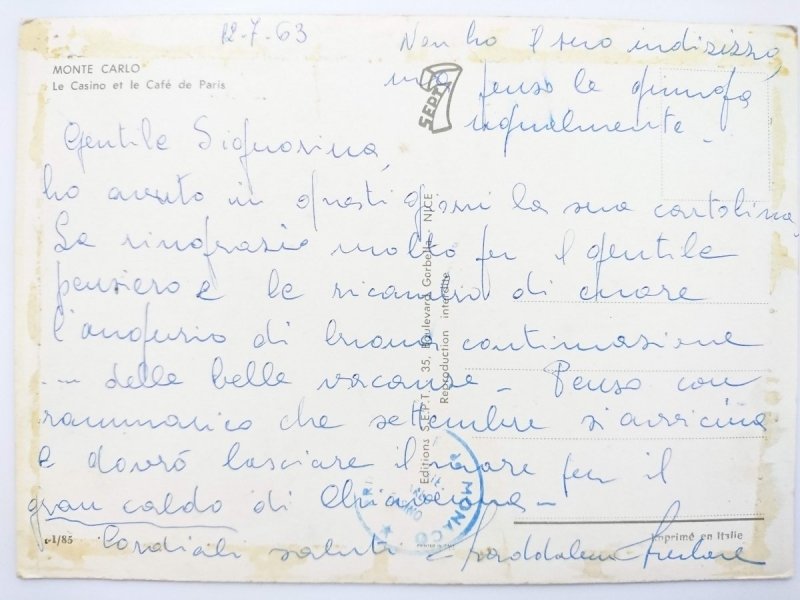 12-7-63
Non ho il suo indirizzo,
ma penso le giunga
ugualmente -
MONTE CARLO
Le Casino et le Café de Paris
SEPT
Gentile Signorina,
ho avuto in questi giorni la sua cartolina,
La ringrazio molto per il gentile
pensiero e le ricambio di cuore
l'augurio di buona continuazione
... delle belle vacanze - Penso con
rammarico che settembre si avvicina
e dovrò lasciare il mare per il
gran caldo di
Cordiali saluti Maddalena
Editions S.E.P.T. 35, Boulevard Gorbella - NICE
Reproduction interdite
MONACO
1/85
Imprimé en Italie